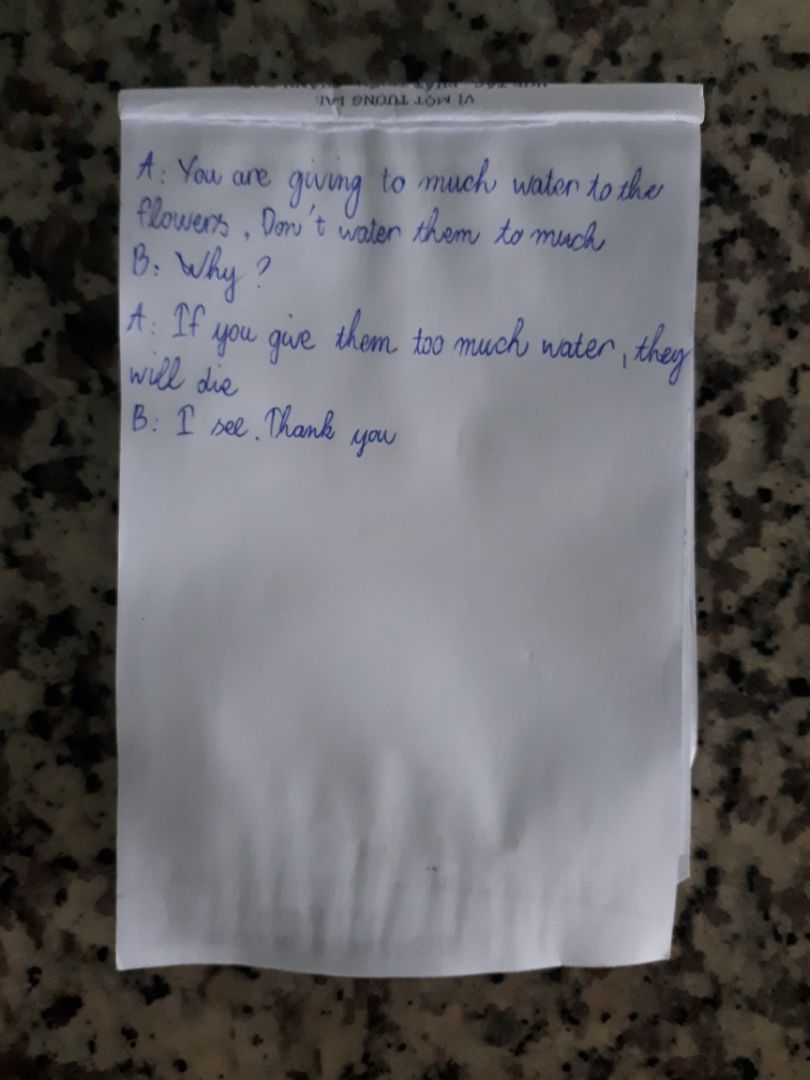 VÌ MỘT TƯƠNG LAI
A: You are giving to much water to the
flowers. Don't water them to much
B: Why?
A: If you give them too much water, they
will die
B: I see. Thank you